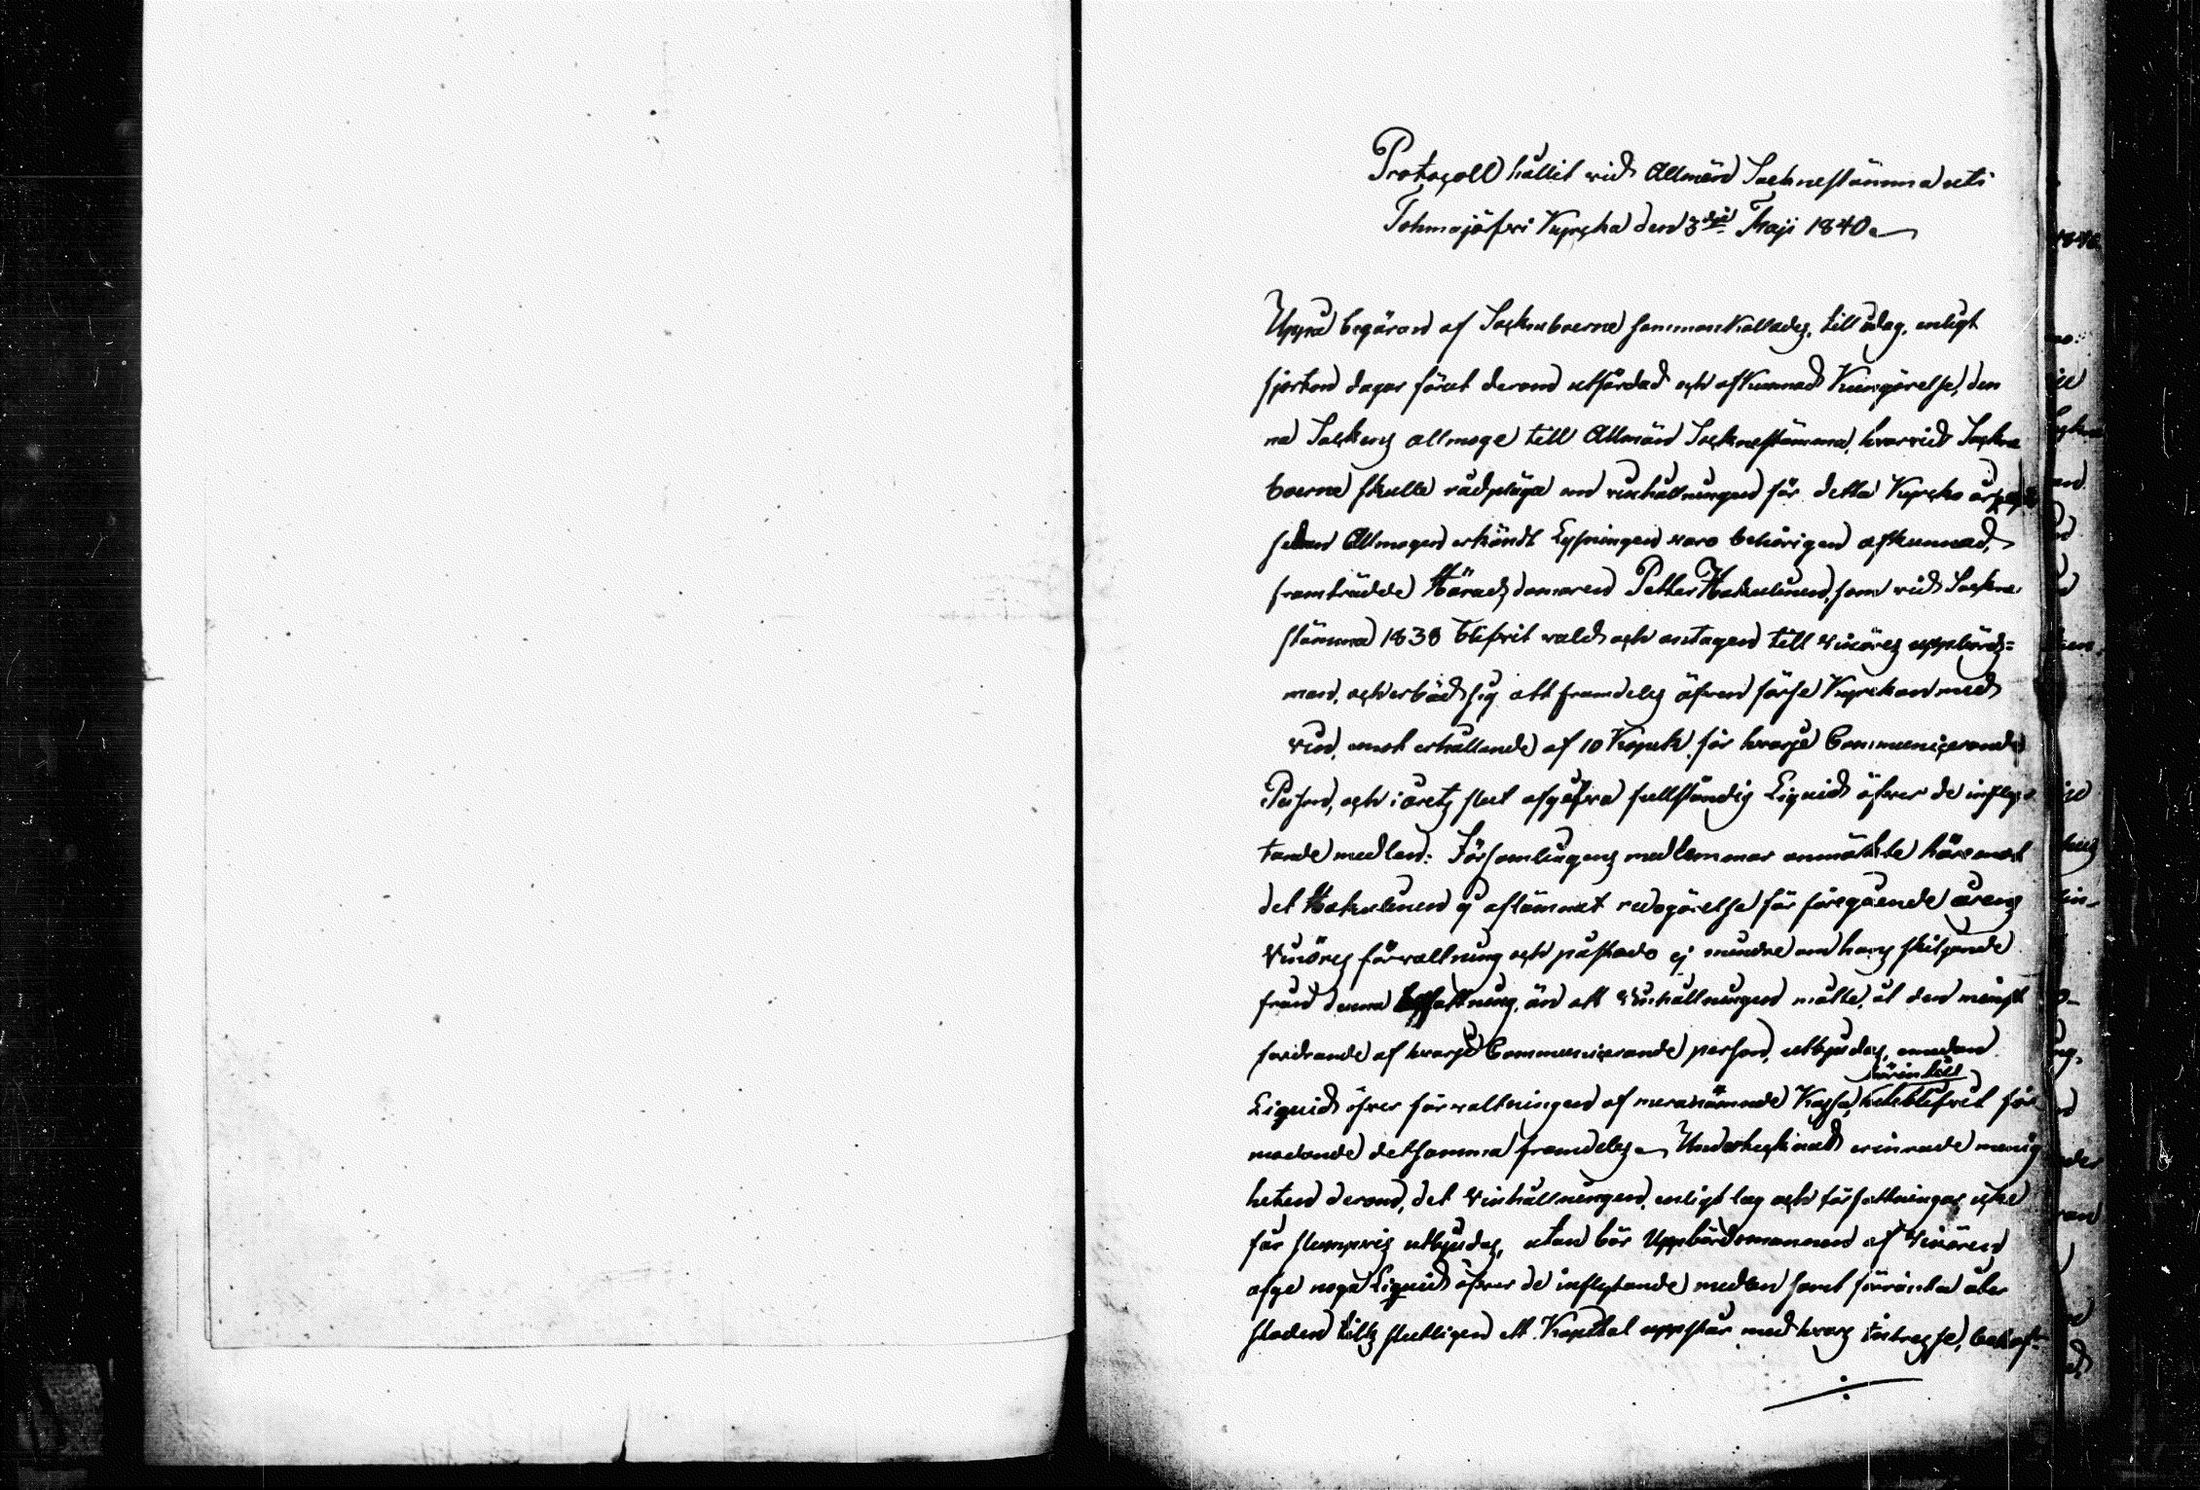 Protocoll hållit vid Allmän Socknestämma uti
Tohmajärfvi Kyrcka den 3dje Maji 1840.
Uppå begäran af Sockneboerne sammankallades, till i dag, enligt
fjorton dagar förut derom utfärdad och afkunnad Kungörelse, den
na Sockens allmoge till Allmän Socknestämma, hvarvid Sockne
boerne skulle rådpläga om vinhållningen för detta Kyrcko år,
sedan Allmogen erkändt Lysningen vara behörigen afkunnad,
framträdde Häradsdomaren Petter Hakulinen, som vid Sockne
stämma 1838 blifvit vald och antagen till Vinöres uppbörds=
man, och erböd sig att framdeles äfven förse Kyrckan med
vin, emot erhållande af 10 Kopek för hvarje Communicerande
Person, och i årets slut afgifva fullständig Liquid öfver de infly-
tande medlen: Församlingens medlemmar anmärkte häremot
det Hakulinen ej aflämnat redogörelse för föregående årens
Vinöres förvaltning och påstodo ej mindre om hans skiljande
från denna befattning, än att Vinhållningen måtte, åt den minst
fordrande af hvarje Communicerande person, utbjudas, emedan
härintill
Liquid öfver förvaltningen af meranämnde Kassa, uteblifvit för
modande detsamma framdeles. Undertecknad erinrade menig
heten derom, det Vinhållningen, enligt lag och författningar icke
får slumpvis utbjudas, utan bör Uppbördsmannen af Vinören
afge noga Liquid öfver de inflytande medlen samt förränta åter
stoden tills slutligen ett Kapital uppstår, med hvars intresse,